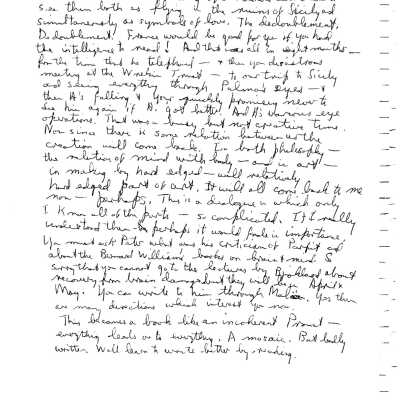 see them both as flying of the ruins of Sicily and
simultaneously as symbols of love. The dedoublement.
Dedoublement. France would be good for you if you had
the intelligence to read! And that was all in eight months —
from the time that he telephoned — & then your disastrous
meeting at the Wrekin Trust — to our trip to Sicily
and seeing everything through Palma's eyes — &
then A's falling & your quickly promising never to
see him again if A. got better. And A's various eye
operations. That was a lousy but not creative time.
Now since there is some relation between us the
creation will come back. In both philosophy —
the relation of mind with body — and in art —
in making by hard edged — with relatively
hard edged part of art. It will all come back to me
now — perhaps. This is a dialogue in which only
I know all of the parts — so complicated. If I really
understood them — perhaps it would fade in importance.
You must ask Peter what was his criticism of Parfit and
about the Bernard Williams books on brain & mind. So
sorry that you cannot go to the lectures by about
recovery from brain damage but they will begin April &
May. You can write to him through Yes there
are many directions which interest you now.
This becomes a book like an incoherent Proust —
everything leads on to everything. A mosaic. But badly
written. Will learn to write better by reading.